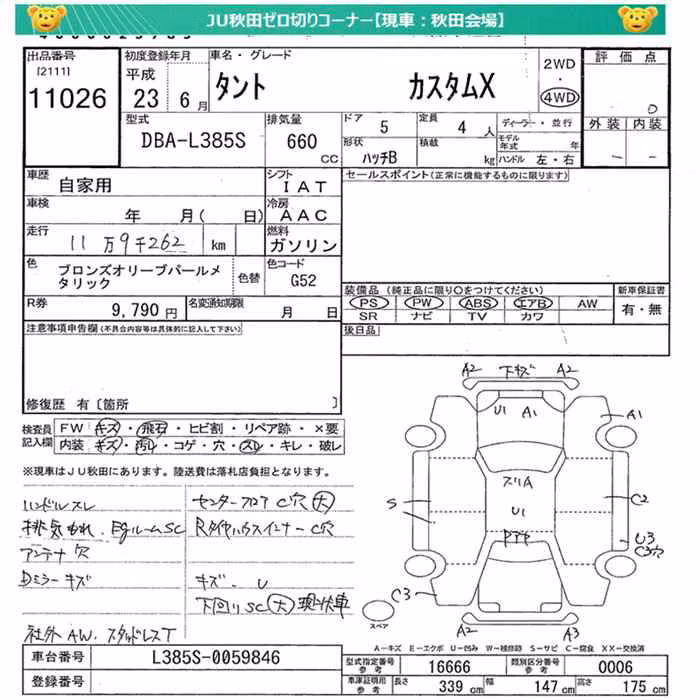 JU秋田ゼロ切りコーナー【現車：秋田会場】
出品番号
[2111]
11026
初度登録年月
平成
23 6月
車名・グレード
タント カスタムX
2WD
・
4WD
評価点
0
外装 内装
－ －
型式
DBA-L385S
排気量
660
CC
ドア 5
定員 4 人
ディーラー・並行
形状
ハッチB
積載
kg
モデル年式 年
ハンドル 左・右
車歴
自家用
シフト
IAT
セールスポイント(正常に機能するものに限ります)
車検
年 月( 日)
冷房
AAC
走行
11万9千262 km
燃料
ガソリン
色
ブロンズオリーブパールメ
タリック
色替
色コード
G52
R券
9,790 円
名変通知期限
月 日
装備品 (純正品に限り○をつけてください)
PS PW ABS エアB AW
SR ナビ TV カワ
新車保証書
有・無
後日品
注意事項申告欄(不具合内容等は具体的に記入して下さい)
修復歴 有〔箇所 〕
検査員
記入欄
FW キズ・飛石・ヒビ割・リペア跡・×要
内装 キズ・汚レ・コゲ・穴・スレ・キレ・破レ
※現車はJU秋田にあります。陸送費は落札店負担となります。
ハンドルスレ
センターフロアC穴(大)
排気もれ、EgルームSC
RタイヤハウスインナーC穴
アンテナ穴
Dミラーキズ
キズ・U
下回りSC(大)現状車
社外AW.スタッドレスT
A2 下キズ A2
U1 A1
A1
スリA
S
U1
C2
U3
C3穴
C3
A2 A3
スペア
A－キズ E－エクボ U－凹み W－補修跡 S－サビ C－腐食 XX－交換済
車台番号
L385S-0059846
登録番号
型式指定番号
参考
16666
類別区分番号
参考
0006
車庫証明用
参考
長さ 339 cm
幅 147 cm
高さ 175 cm